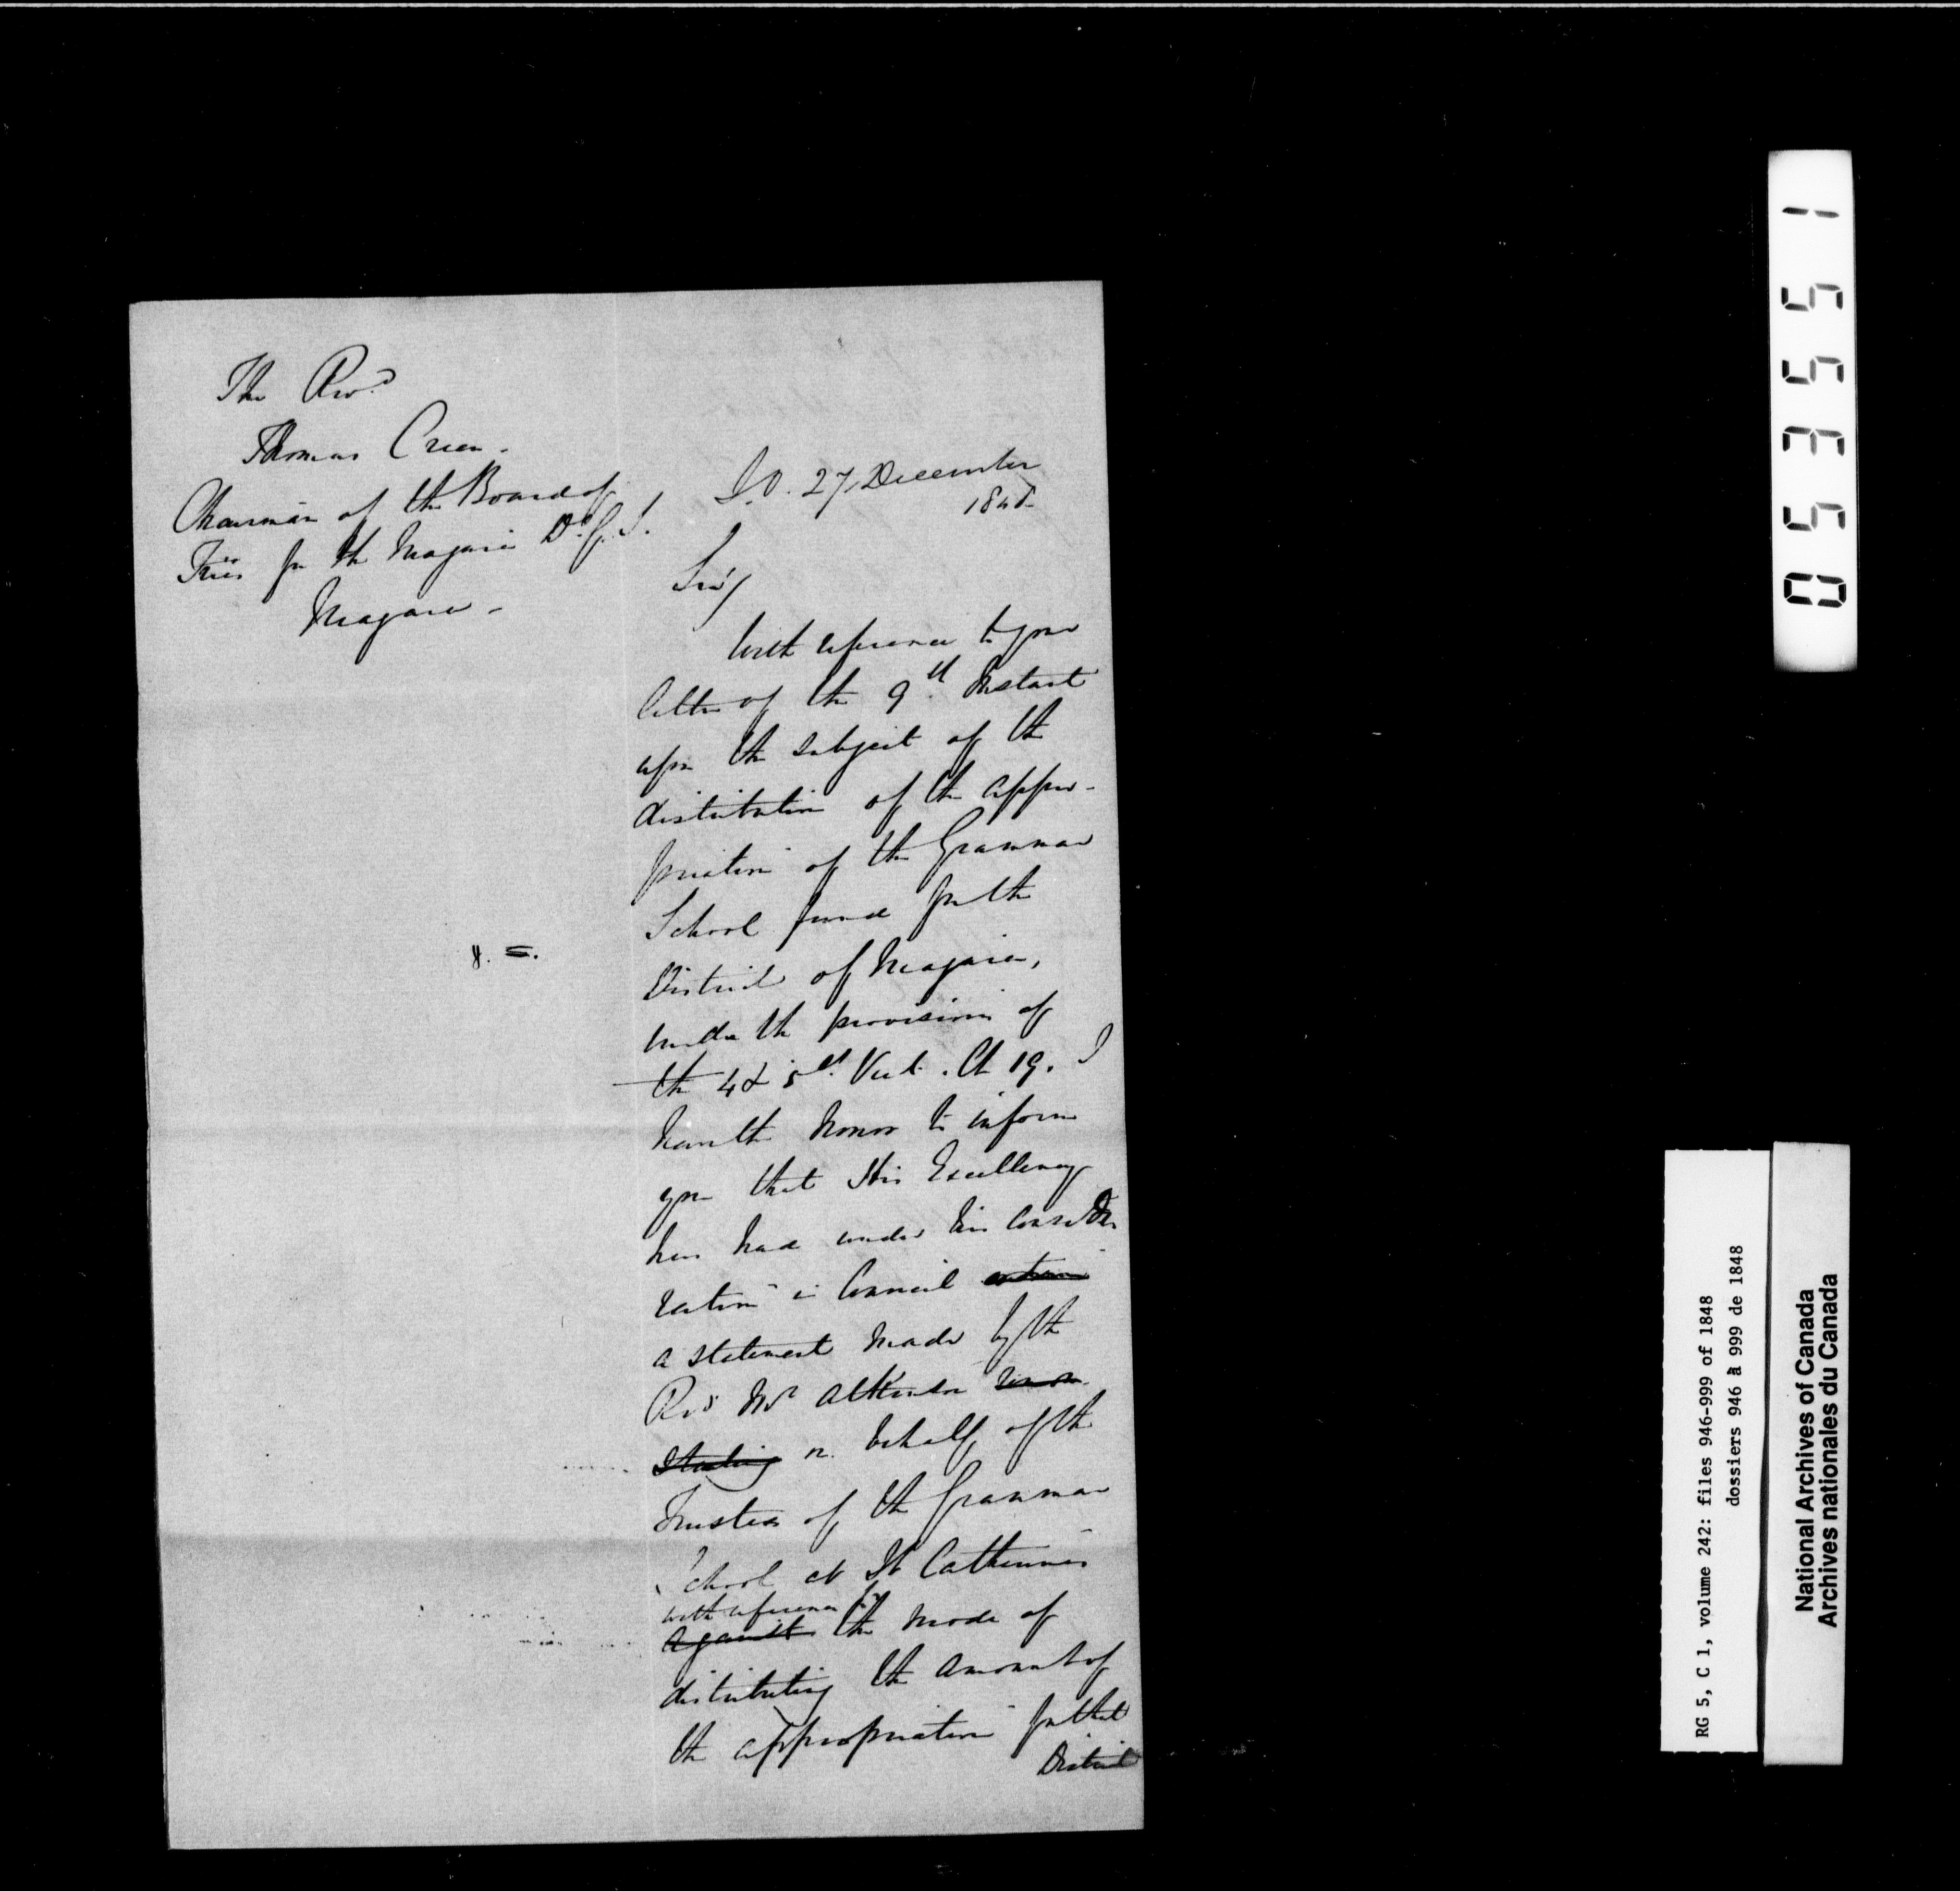 The Revd
Thomas Creen.
Chairman of the Board of
Trees for the Niagara D. G. S.
Niagara -
S.O. 27, December
1848
Sir,
With reference to your
letter of the 9th Instant
upon the subject of the
distribution of the appro-
priation of the Grammar
School fund for the
District of Niagara,
under the provisions of
the 4 & 5th Vict. Ch 19. I
have the honor to inform
you that His Excellency
has had under his conside
ration in Council
a statement made by the
Revd Mr Atkinson
Stating on behalf of the
Trustees of the Grammar
School at St Catherines
with reference to
against the mode of
distributing the amount of
the appropriation for that
District
053551
RG 5, C 1, volume 242: files 946-999 of 1848
dossiers 946 à 999 de 1848
National Archives of Canada
Archives nationales du Canada